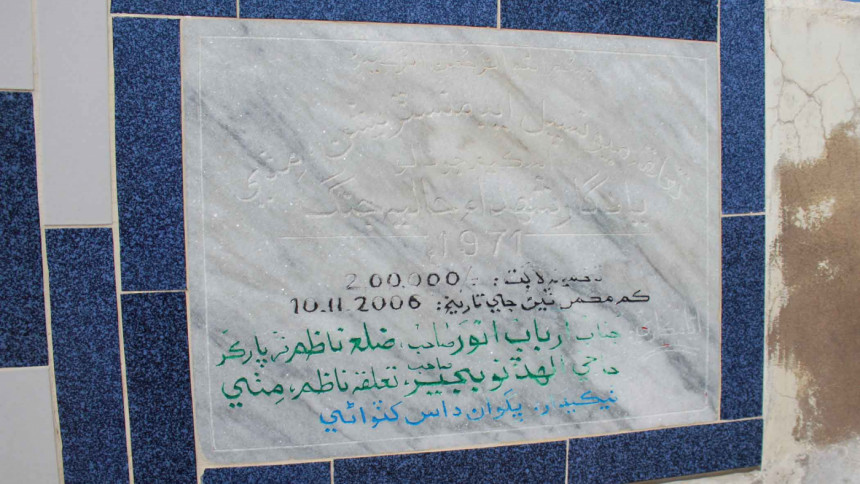 بسم الله الرحمٰن الرحيم
تعلقه ميونسپل ايڊمنسٽريشن مِٺي
اسڪيم جو نالو
يادگار شهداء حاليه جنگ
1971ع
تعميري لاڳت: =/2,00,000
ڪم مڪمل ٿيڻ جي تاريخ: 10.11.2006
جناب ارباب انور صاحب، ضلع ناظم ٿرپارڪر
حاجي الهڏنو بجير صاحب، تعلقه ناظم، مِٺي
ٺيڪيدار: ڀڳوان داس کٽواڻي